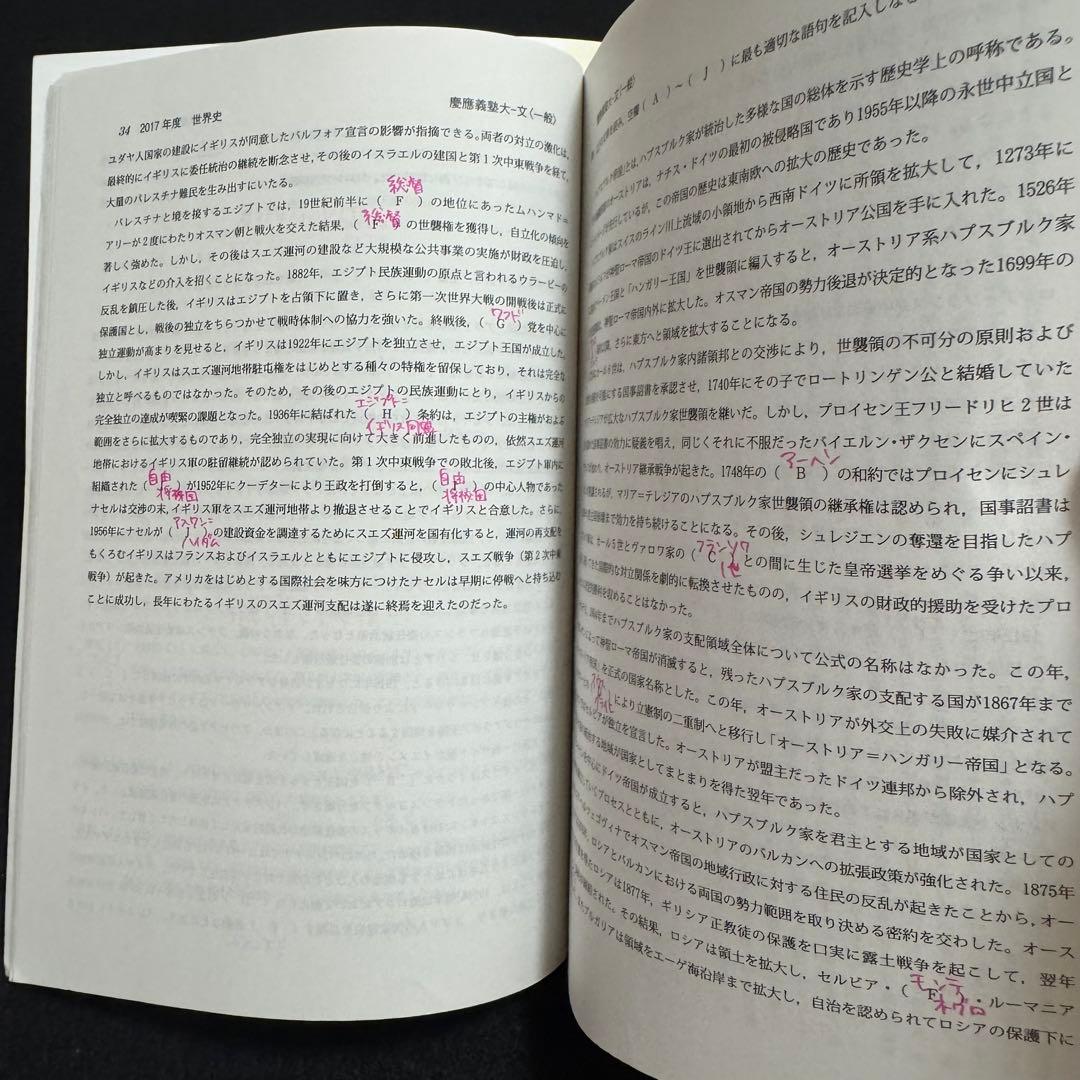 34 2017年度 世界史
慶應義塾大-文(一般)
ユダヤ人国家の建設にイギリスが同意したバルフォア宣言の影響が指摘できる。両者の対立の激化は,
最終的にイギリスに委任統治の継続を断念させ,その後のイスラエルの建国と第1次中東戦争を経て,
大量のパレスチナ難民を生み出すにいたる。
総督
パレスチナと境を接するエジプトでは,19世紀前半に( F )の地位にあったムハンマド=
総督
アリーが2度にわたりオスマン朝と戦火を交えた結果,( F )の世襲権を獲得し,自立化の傾向を
著しく強めた。しかし,その後はスエズ運河の建設など大規模な公共事業の実施が財政を圧迫し,
イギリスなどの介入を招くことになった。1882年,エジプト民族運動の原点と言われるウラービーの
反乱を鎮圧した後,イギリスはエジプトを占領下に置き,さらに第一次世界大戦の開戦後は正式に
ワフド
保護国とし,戦後の独立をちらつかせて戦時体制への協力を強いた。終戦後,( G )党を中心に
独立運動が高まりを見せると,イギリスは1922年にエジプトを独立させ,エジプト王国が成立した。
しかし,イギリスはスエズ運河地帯駐屯権をはじめとする種々の特権を留保しており,それは完全な
独立と呼べるものではなかった。そのため,その後のエジプトの民族運動にとり,イギリスからの
エジプト=
完全独立の達成が喫緊の課題となった。1936年に結ばれた( H )条約は,エジプトの主権がおよぶ
イギリス同盟
範囲をさらに拡大するものであり,完全独立の実現に向けて大きく前進したものの,依然スエズ運河
地帯におけるイギリス軍の駐留継続が認められていた。第1次中東戦争での敗北後,エジプト軍内に
自由 自由
組織された( )が1952年にクーデターにより王政を打倒すると,( I )の中心人物であった
将校団 将校団
ナセルは交渉の末,イギリス軍をスエズ運河地帯より撤退させることでイギリスと合意した。さらに,
アスワン=
1956年にナセルが( J )の建設資金を調達するためにスエズ運河を国有化すると,運河の再支配を
ハイダム
もくろむイギリスはフランスおよびイスラエルとともにエジプトに侵攻し,スエズ戦争(第2次中東
戦争)が起きた。アメリカをはじめとする国際社会を味方につけたナセルは早期に停戦へと持ち込む
ことに成功し,長年にわたるイギリスのスエズ運河支配は遂に終焉を迎えたのだった。
( A )~( J )に最も適切な語句を記入しな
は,ハプスブルク家が統治した多様な国の総体を示す歴史学上の呼称である。
オーストリアは,ナチス・ドイツの最初の被侵略国であり1955年以降の永世中立国と
が,この帝国の歴史は東南欧への拡大の歴史であった。
スイスのライン川上流域の小領地から西南ドイツに所領を拡大して,1273年に
神聖ローマ帝国のドイツ王に選出されてからオーストリア公国を手に入れた。1526年
「ハンガリー王国」を世襲領に編入すると,オーストリア系ハプスブルク家
帝国内外に拡大した。オスマン帝国の勢力後退が決定的となった1699年の
さらに東方へと領域を拡大することになる。
ハプスブルク家内諸領邦との交渉により,世襲領の不可分の原則および
国事詔書を承認させ,1740年にその子でロートリンゲン公と結婚していた
ハプスブルク家世襲領を継いだ。しかし,プロイセン王フリードリヒ2世は
の効力に疑義を唱え,同じくそれに不服だったバイエルン・ザクセンにスペイン・
アーヘン
オーストリア継承戦争が起きた。1748年の( B )の和約ではプロイセンにシュレ
マリア=テレジアのハプスブルク家世襲領の継承権は認められ,国事詔書は
効力を持ち続けることになる。その後,シュレジエンの奪還を目指したハプ
フランソワ
カール5世とヴァロワ家の( C )との間に生じた皇帝選挙をめぐる争い以来,
1世
的な対立関係を劇的に転換させたものの,イギリスの財政的援助を受けたプロ
を収めることはなかった。
1804年までハプスブルク家の支配領域全体について公式の名称はなかった。この年,
神聖ローマ帝国が消滅すると,残ったハプスブルク家の支配する国が1867年まで
を正式の国家名称とした。この年,オーストリアが外交上の失敗に媒介されて
により立憲制の二重制へと移行し「オーストリア=ハンガリー帝国」となる。
が独立を宣言した。オーストリアが盟主だったドイツ連邦から除外され,ハプ
する地域が国家としてまとまりを得た翌年であった。
を中心にドイツ帝国が成立すると,ハプスブルク家を君主とする地域が国家としての
していくプロセスとともに,オーストリアのバルカンへの拡張政策が強化された。1875年
ヘルツェゴヴィナでオスマン帝国の地域行政に対する住民の反乱が起きたことから,オー
ロシアとバルカンにおける両国の勢力範囲を取り決める密約を交わした。オース
ロシアは1877年,ギリシア正教徒の保護を口実に露土戦争を起こして,翌年
モンテ
された。その結果,ロシアは領土を拡大し,セルビア・( E )・ルーマニア
ネグロ
ブルガリアは領域をエーゲ海沿岸まで拡大し,自治を認められてロシアの保護下に